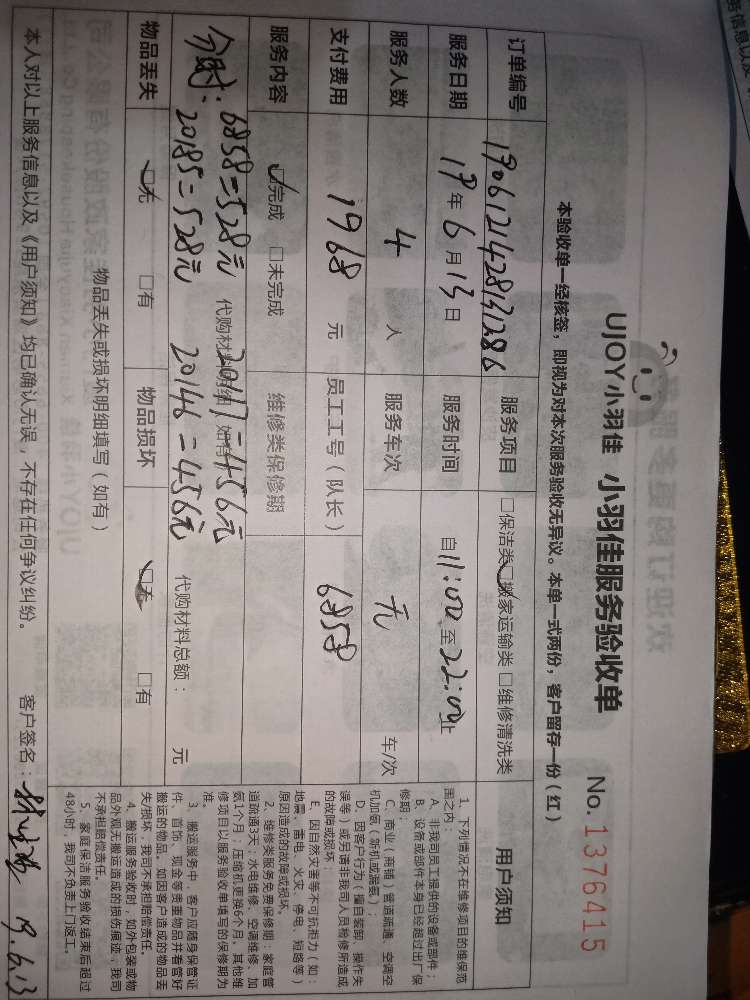 UJOY小羽佳 小羽佳服务验收单 No. 1376415
本验收单一经核签，即视为对本次服务验收无异议。本单一式两份，客户留存一份（红）
订单编号 1906121428131286 服务项目 □保洁类 ☑搬家运输类 □维修清洗类
服务日期 19年6月13日 服务时间 自11:00至22:00止
服务人数 4 人 服务车次 无 车/次
支付费用 1968 元 员工工号（队长） 6858
服务内容 ☑完成 □未完成 维修类保修期
代购材料明细 如有 代购材料总额： 元
6858=528元 20117=456元
20185=528元 20146=456元
物品丢失 ☑无 □有 物品损坏 ☑无 □有
物品丢失或损坏明细填写（如有）
本人对以上服务信息以及《用户须知》均已确认无误，不存在任何争议纠纷。 客户签名： 19.6.13
用户须知
1、下列情况不在维修项目的维保范
围之内：
A、非我司员工提供的设备或部件；
B、设备或部件本身已经超过出厂保
修期；
C、商业（商铺）管道疏通、空调空
机加氨（新机或漏氨）；
D、因客户行为（擅自装卸、操作失
误等）或另请非我司人员检修所造成
的故障或损坏；
E、因自然灾害等不可抗拒力（如：
地震、雷电、火灾、停电、短路等）
原因造成的故障或损坏。
2、维修类服务免费保修期：家庭管
道疏通3天；水电维修、空调维修、加
氨1个月；压缩机更换6个月。其他维
修项目以服务验收单填写的保修期为
准。
3、搬运服务中，客户应随身保管证
件、首饰、现金等贵重物品并看管好
搬运的物品。如因客户造成的物品丢
失/损坏，我司不承担赔偿责任。
4、搬运服务验收时，如外包装或物
品外观无搬运造成的损伤痕迹，我司
不承担赔偿责任。
5、家庭保洁服务验收结束后超过
48小时，我司不负责上门返工。